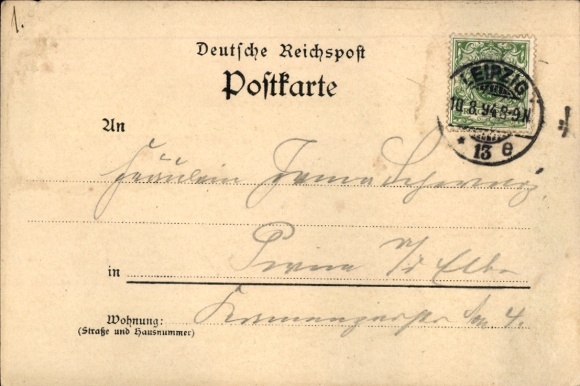 1.
Deutsche Reichspost
Postkarte
LEIPZIG
10.8.94.8-9N
* 13 e
An
Fräulein
in Pirna a/d Elbe
Wohnung: 4.
(Straße und Hausnummer)